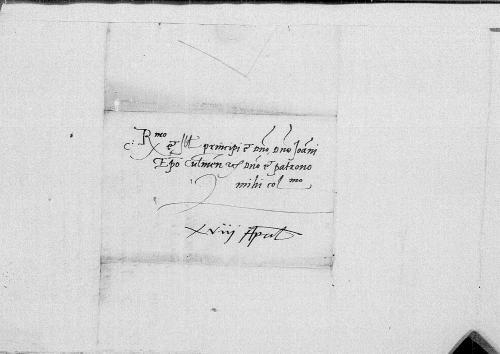 Rmo et Illi principi et dno, dno Joani
Epo Culmen dno et patrono
mihi colmo
xviij Apl